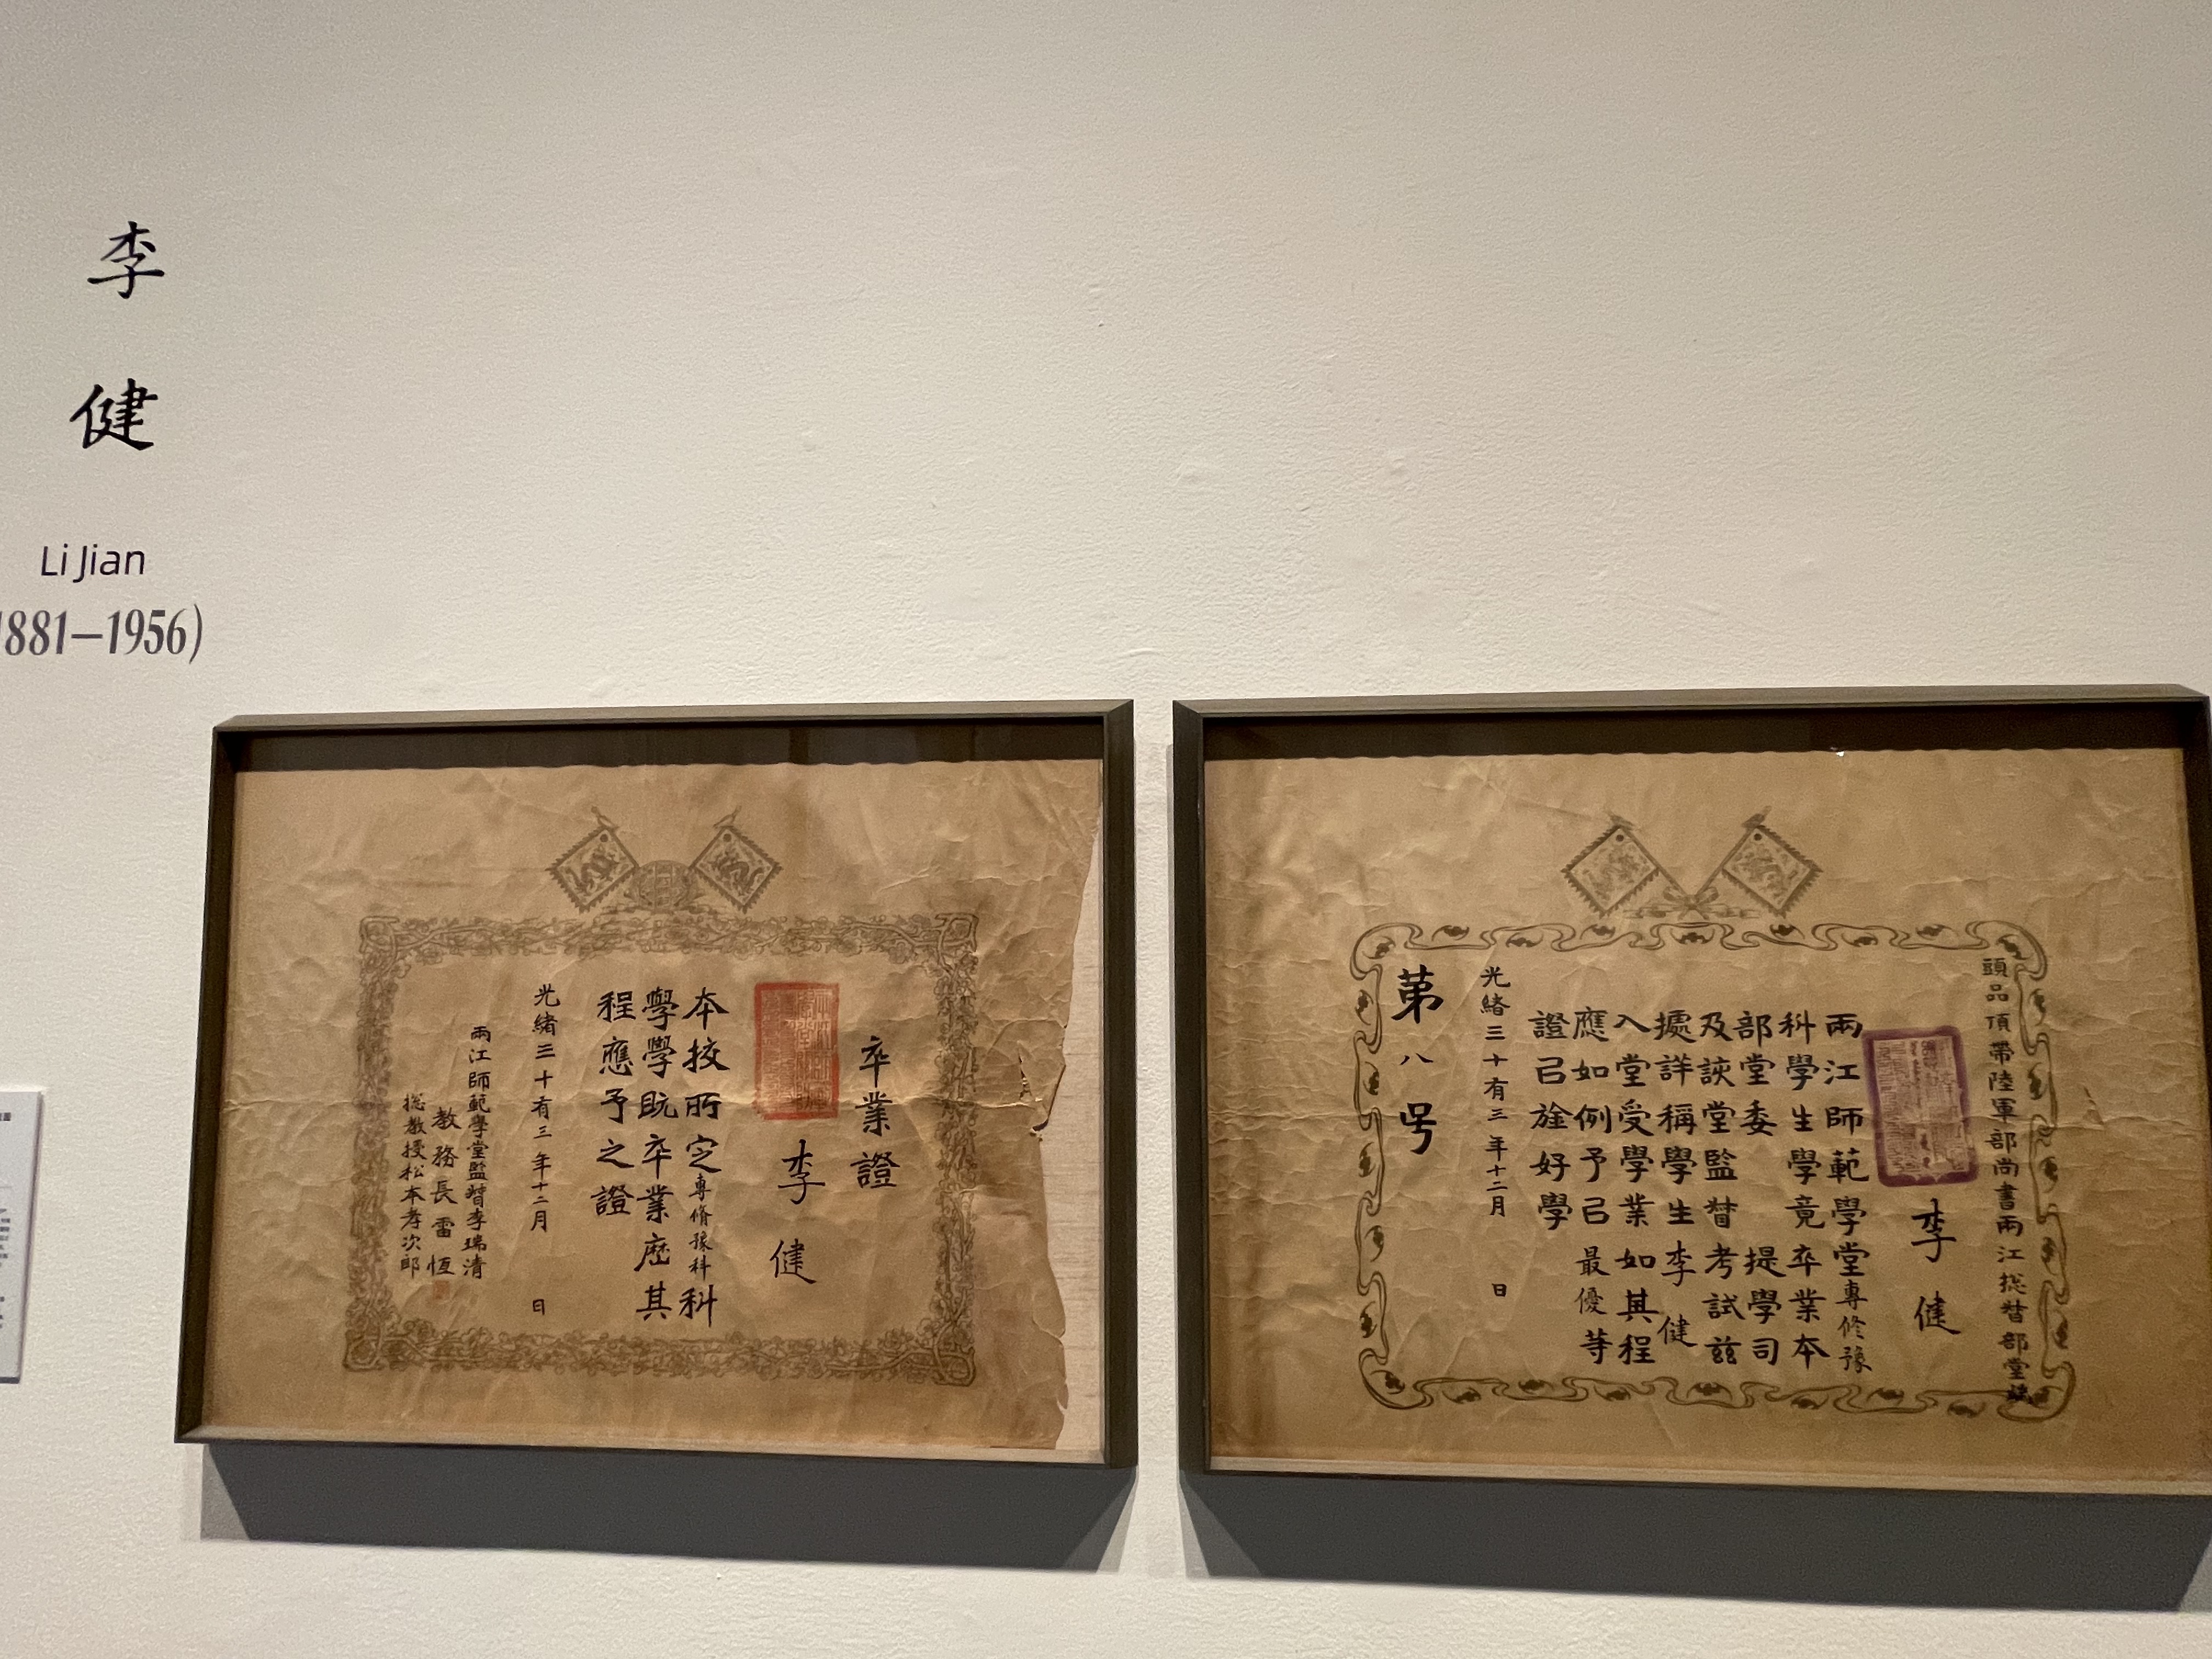 李
健
Li Jian
881–1956)
卒業證
李健
本挍所定專脩豫科科
學學既卒業歷其
程應予之證
光緒三十有三年十二月 日
兩江師範學堂監督李瑞清
教務長雷恆
總教授松本孝次郎
頭品頂帶陸軍部尚書兩江總督部堂端
李健
兩江師範學堂專修豫
科學生學竟卒業本
部堂委 提學司
及該堂監督考試茲
據詳稱學生李健
入堂受學業如其程
應如例予㠯最優等
證㠯旌好學
光緒三十有三年十二月 日
苐八号